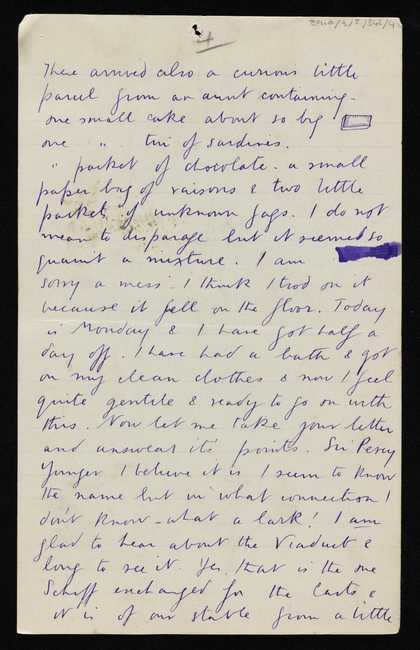 4
There arrived also a curious little
parcel from an aunt containing -
one small cake about so big
one " " tin of sardines.
" packet of chocolate. a small
paper bag of raisons & two little
packets of unknown fags. I do not
mean to disparage but it seemed so
quaint a mixture. I am
sorry a mess. I think I trod on it
because it fell on the floor. Today
is Monday & I have got half a
day off. I have had a bath & got
on my clean clothes & now I feel
quite gentile & ready to go on with
this. Now let me take your letter
and answear its points. Sir Percy
Younger I believe it is I seem to know
the name but in what connection I
don't know - what a lark! I am
glad to hear about the Viaduct &
long to see it. Yes, that is the one
Schiff exchanged for the &
it is of our stable from a little